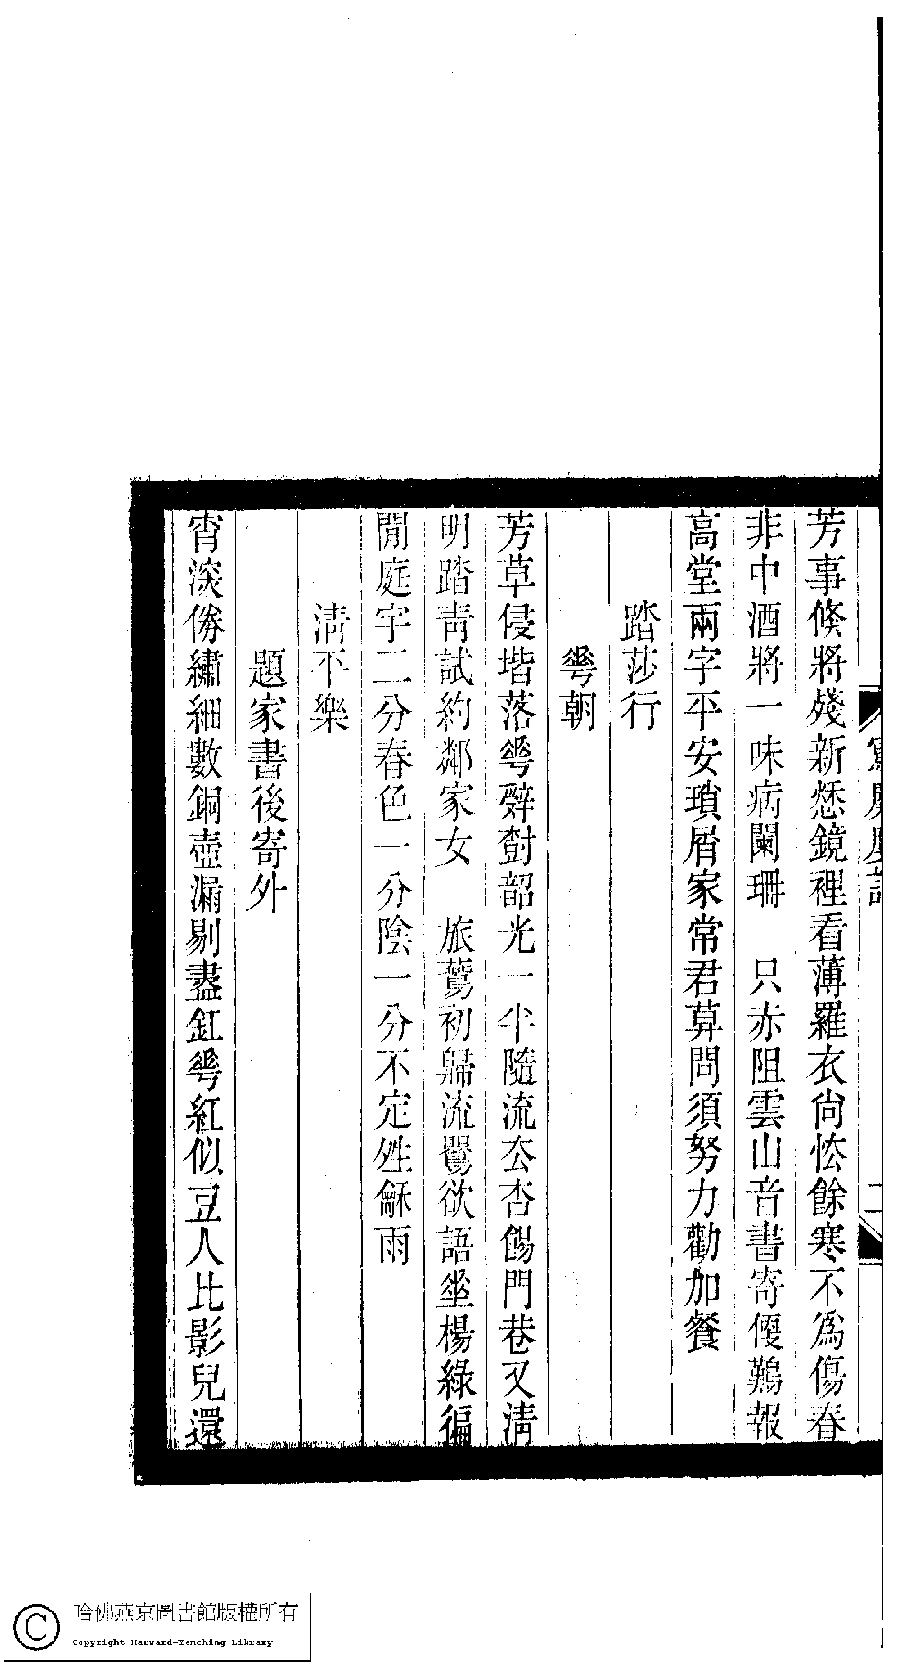 芳事倏將殘新愁鏡裡看薄羅衣尙怯餘寒不爲傷春
非中酒將一味病闌珊　只赤阻雲山音書寄便難報
高堂兩字平安瑣屑家常君莫問須努力勸加餐
踏莎行
雩朝
芳草侵堦落雩辤尌韶光一半隨流厺杏餳門巷又淸
明踏靑試約鄰家女　旅鷰初歸流鶯欲語坐楊綠徧
閒庭宇二分春色一分陰一分不定夝龢雨
淸平樂
題家書後寄外
宵深倦繡細數銅壺漏剔盡釭雩紅似豆人比影兒還
二
哈佛燕京圖書館版權所有
Copyright Harvard-Yenching Library